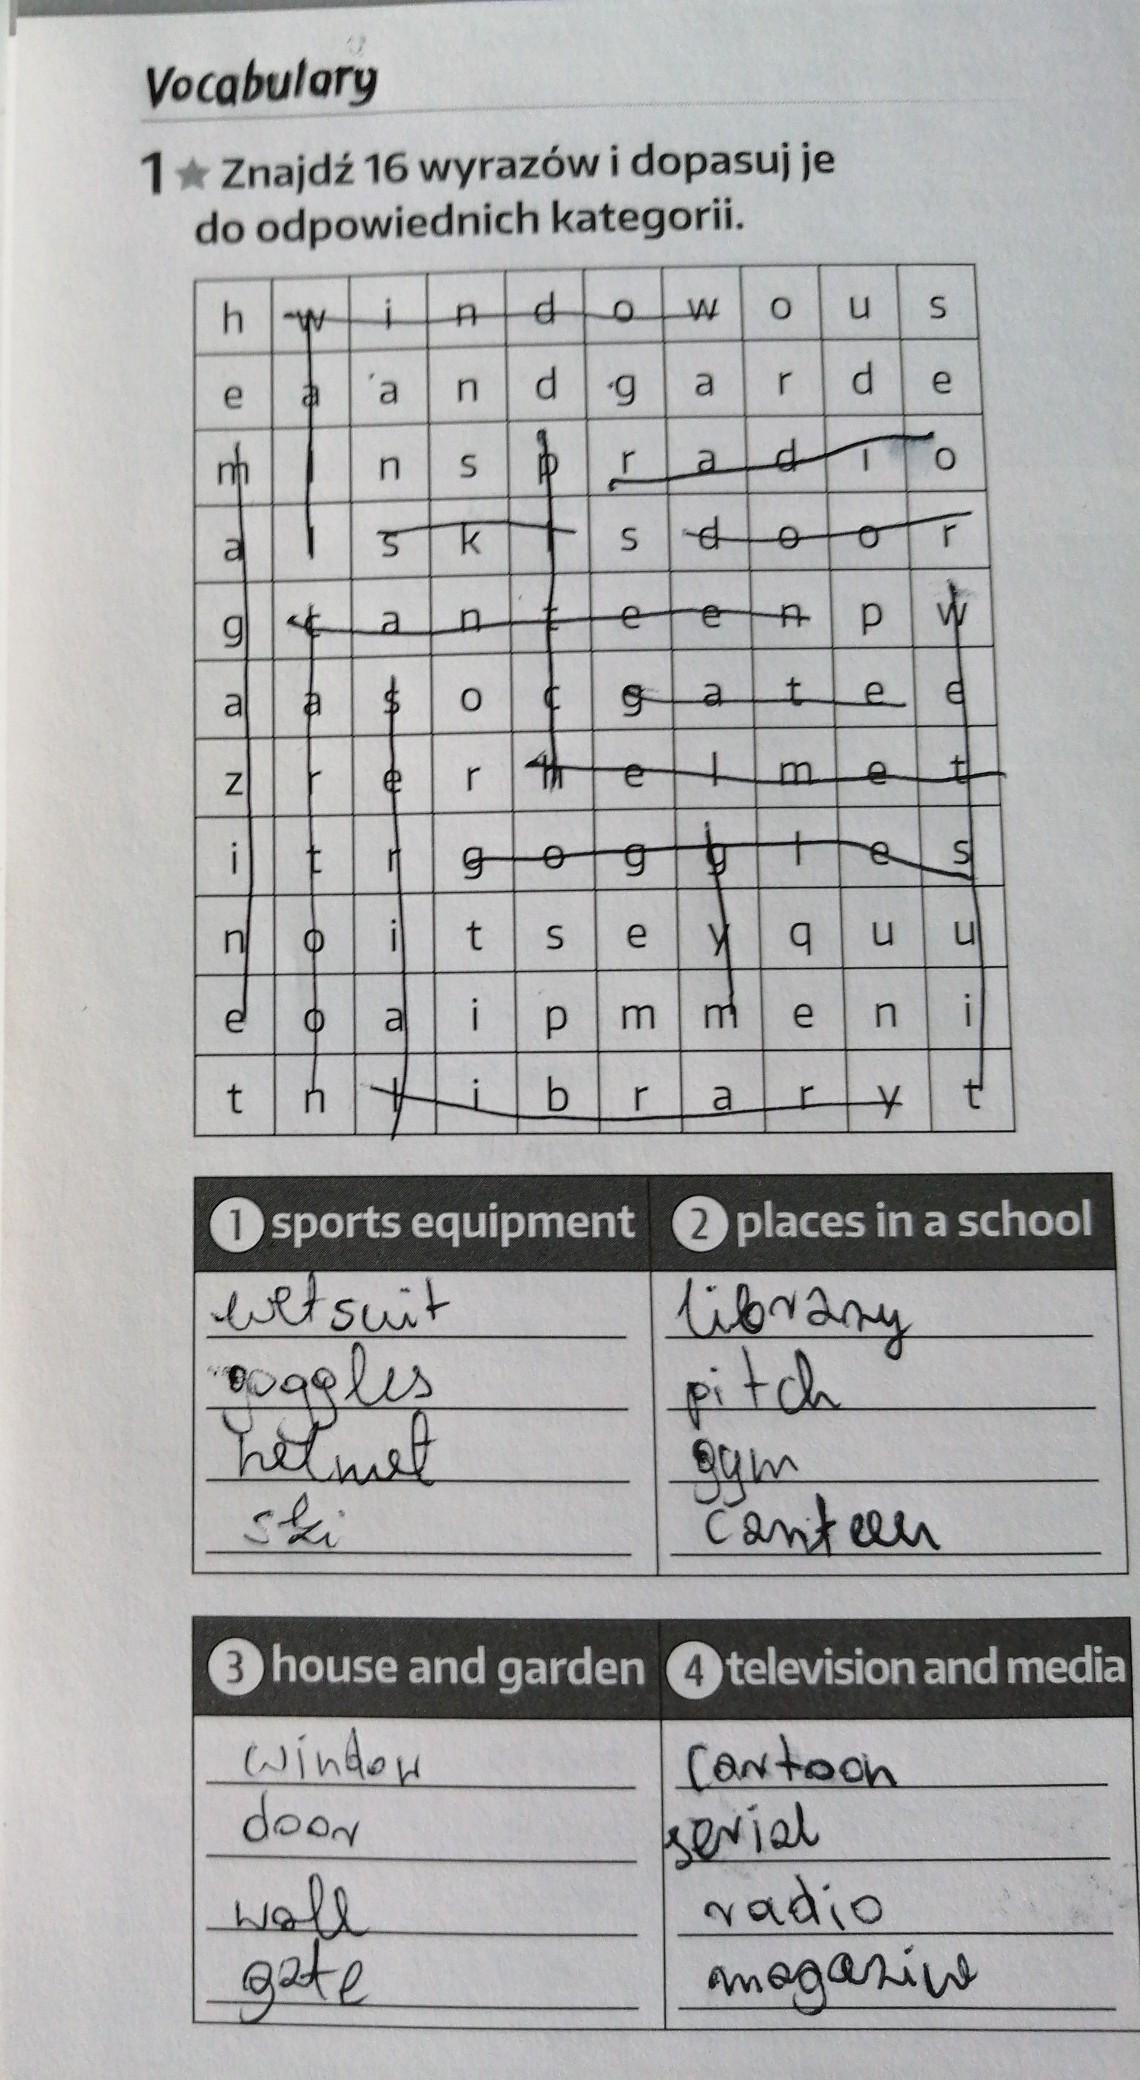 Vocabulary
1 ★ Znajdź 16 wyrazów i dopasuj je
do odpowiednich kategorii.
h w i n d o w o u s
e a a n d g a r d e
m l n s p r a d i o
a l s k i s d o o r
g c a n t e e n p w
a a s o c g a t e e
z r e r h e l m e t
i t r g o g g l e s
n o i t s e y q u u
e o a i p m m e n i
t n l i b r a r y t
1 sports equipment 2 places in a school
wetsuit library
goggles pitch
helmet gym
ski canteen
3 house and garden 4 television and media
window cartoon
door serial
wall radio
gate magazine